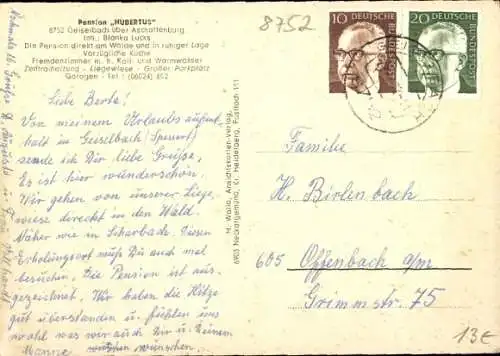 Pension „HUBERTUS"
8752 Geiselbach über Aschaffenburg
Inh.: Blanka Lucks
Die Pension direkt am Walde und in ruhiger Lage
Vorzügliche Küche
Fremdenzimmer m. fl. Kalt- und Warmwasser
Zentralheizung - Liegewiese - Großer Parkplatz
Garagen - Tel.: (06024) 852
Liebe Berta!
Von meinem Urlaubsaufent-
halt in Geiselbach (Spessart)
sende ich Dir liebe Grüße,
Es ist hier wunderschön.
Wir gehen von unserer Liege-
wiese direckt in den Wald.
Näher wie in Scharbach. Diesen
Erholungsort muß Du auch mal
besuchen. Die Pension ist aus-
gezeichnet. Wir haben die Hitze
gut überstanden u. fühlen uns
wohl was wir auch Dir u. Deinem
Manne wünschen.
Nochmals lb. Grüße
H. Walla, Ansichtskarten-Verlag,
6903 Neckargemünd, Kr. Heidelberg, Postfach 151
8752
10
DEUTSCHE
BUNDESPOST
20
DEUTSCHE
BUNDESPOST
Familie
H. Birlenbach
605 Offenbach a/m
Grimmstr. 75
13€